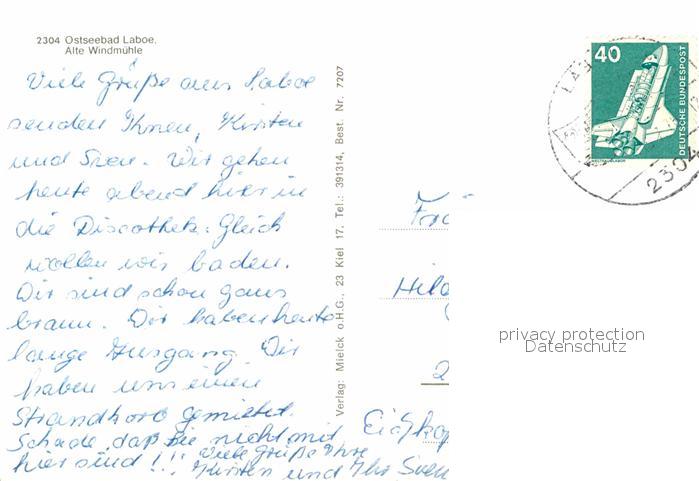 2304 Ostseebad Laboe,
Alte Windmühle
Viele Grüße aus Laboe
senden Ihnen, Kirsten
und Sven. Wir gehen
heute abend hier in
die Discothek. Gleich
wollen wir baden.
Wir sind schon ganz
braun. Wir haben heute
lange Ausgang. Wir
haben uns einen
Strandkorb gemietet.
Schade, daß Sie nicht mit
hier sind!!! Viele Grüße Ihre
Kirsten und Ihr Sven
Verlag: Mielck o.H.G., 23 Kiel 17, Tel.: 391314, Best. Nr. 7207
40
DEUTSCHE BUNDESPOST
WELTRAUMLABOR
2304
Hild
2
privacy protection
Datenschutz